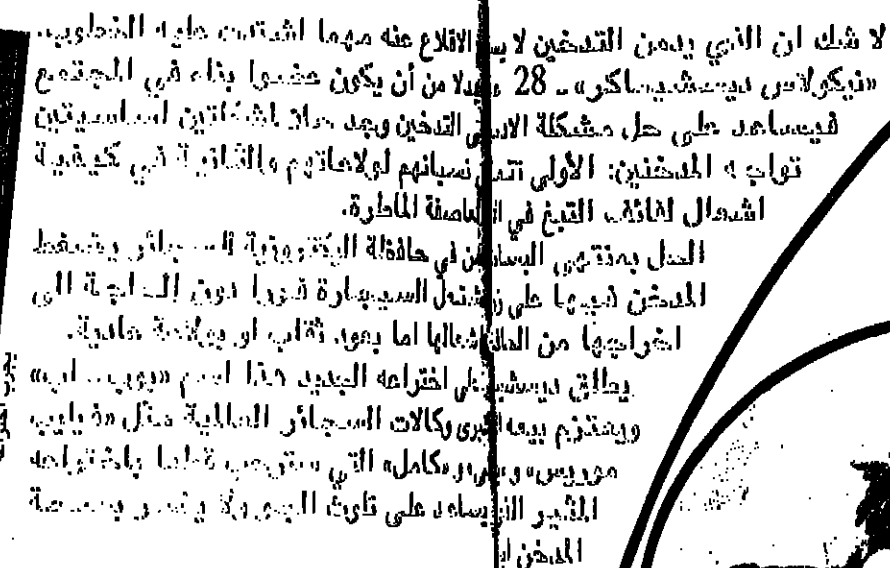 لا شك ان الذي يدمن التدخين لا يـ الاقلاع عنه مهما اشتدت عليه الخطوب.
«نيكولاس ديسشيساكر» ـ 28 بدلا من أن يكون عضوا بناء في المجتمع
فيساعد على حل مشكلة الادـ التدخين وجد حلا لمشكلتين اساسيتين
تواجه المدخنين: الأولى نسيانهم لولاعاتهم والثانية في كيفية
اشعال لفائف التبغ في العاصفة الماطرة.
الحل بمنتهى البساـ في حافظة الكترونية للسجائر يضغط
المدخن فيها على زر السيجارة فورا دون الحاجة الى
اخراجها من اشعالها اما بعود ثقاب او بولاعة عادية.
يطلق ديسشيـ اختراعه الجديد هذا اسم «بوب ـ اب»
ويعتزم بيعه وكالات السجائر العالمية مثل «فيليب
موريس» و «كامل» التي سترحب قطعا باختراعه
المثير الذي يساعد على تلوث الجو ولا يضر بصحة
المدخن
يجرب